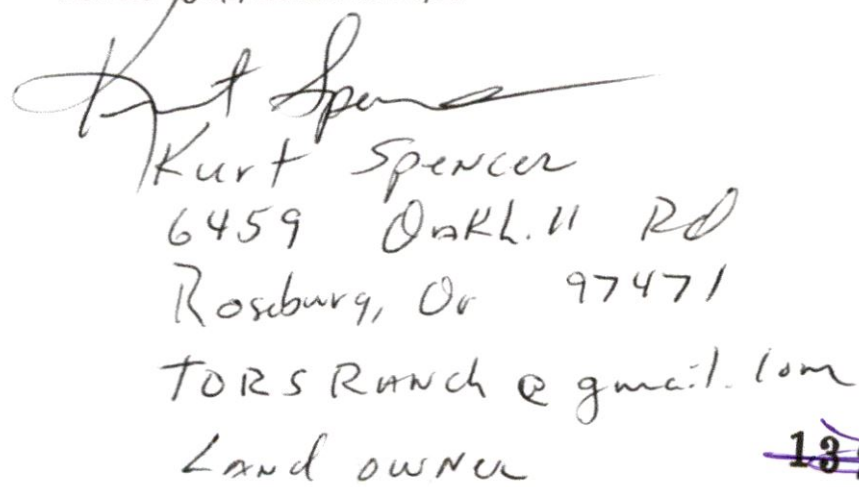 Kurt Spencer
Kurt Spencer
6459 Oakhill Rd
Roseburg, Or 97471
TORSRANch@gmail.com
LANd OWNer